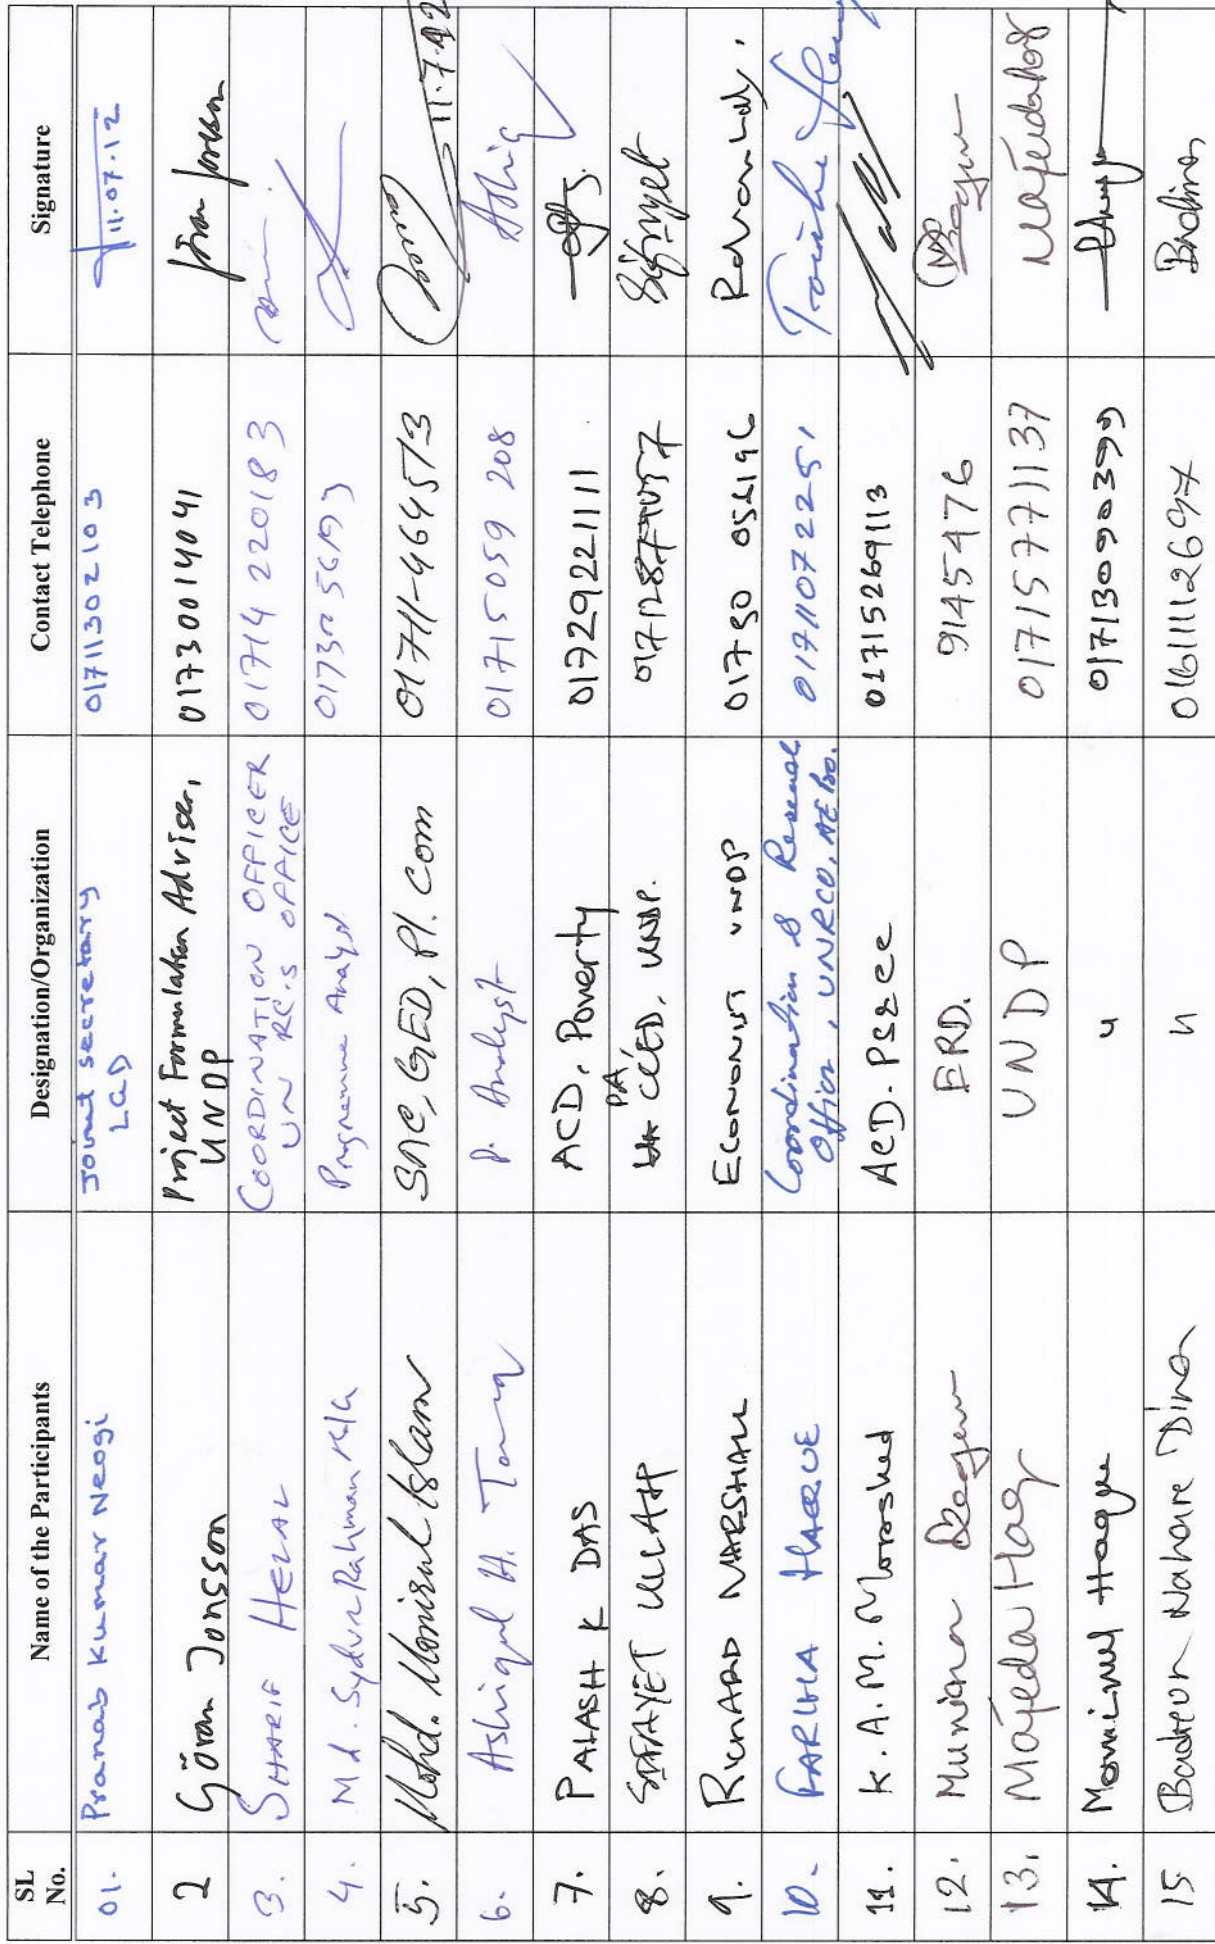 SL No. Name of the Participants Designation/Organization Contact Telephone Signature
01. Pranab Kumar Neogi Joint secretary LGD 01711302103 11.07.12
2 Göran Jonsson Project Formulation Adviser, UNDP 01730014041 Göran Jonsson
3. SHARIF HEZAL COORDINATION OFFICER UN RC.s OFFICE 01714 220183
4. Md. Sydur Rahman Programme Analyst
5. Mohd. Monirul Islam SAC, GED, Pl. Com 01711-464573 11.7.12
6. Ashiqul H. P. Analyst 01715059 208 Ashiq
7. PALASH K DAS ACD, Poverty 01729221111
8. SEFAYET ULLAH PA, CCED, UNDP.
9. RICHARD MARSHALL ECONOMIST UNDP 01730
10. FARIHA HAQUE Coordination & Research Officer, UNRCO, 01711072251
11. K. A. M. Morshed ACD. PS&CC 01715269113
12. Munira Begum ERD. 9145476 Begum
13. Majeda Haq UNDP 01715771137 Majeda Haq
14. Mominul Haque " 01713090399
15 Badrun Nahare Dina " 01611112697